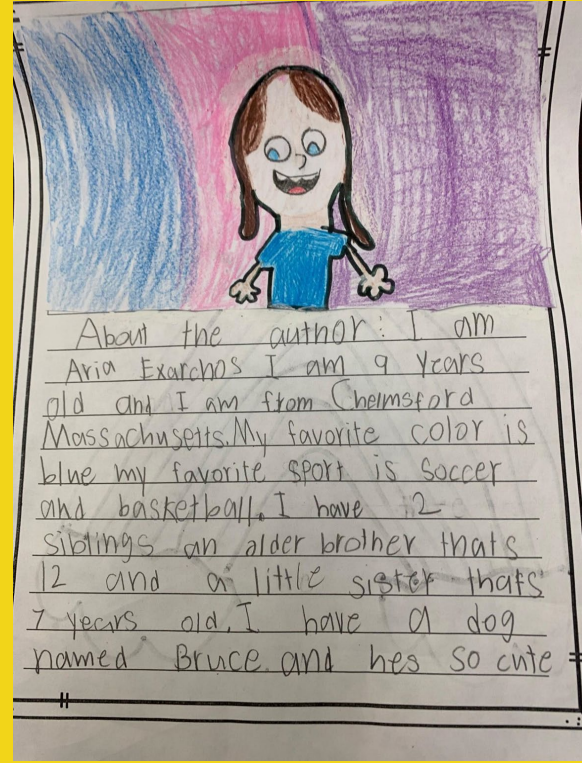 About the author: I am
Aria Exarchos I am 9 years
old and I am from Chelmsford
Massachusetts. My favorite color is
blue my favorite sport is soccer
and basketball. I have 2
siblings an older brother thats
12 and a little sister thats
7 years old. I have a dog
named Bruce and hes so cute